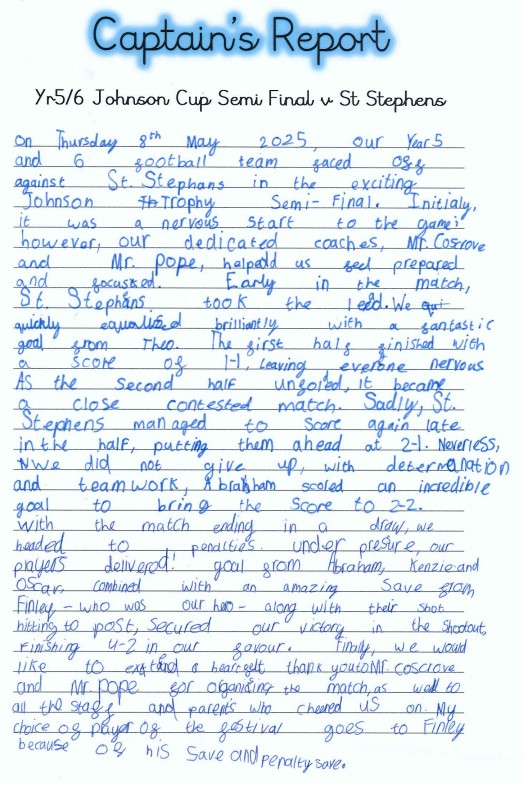 Captain's Report
Yr5/6 Johnson Cup Semi Final v St Stephens
On Thursday 8th May 2025, our Year 5
and 6 football team faced off
against St. Stephans in the exciting
Johnson Th Trophy Semi-Final. Initialy,
it was a nervous start to the game;
however, our dedicated coaches, Mr. Cosrove
and Mr. Pope, helped us prepared
and focussed. Early in the match,
St. Stephans took the lead. We
quickly equalised brilliantly with a fantastic
goal from Theo. The first half finished with
a score of 1-1, leaving everone nervous
As the second half unfoled, it became
a close contested match. Sadly, St.
Stephens managed to score again late
in the half, putting them ahead at 2-1. Neverless,
we did not give up, with determanation
and teamwork, Abrahham scoled an incredible
goal to bring the score to 2-2.
With the match ending in a draw, we
headed to penalties. under presure, our
players delivered! goal from Abraham, Kenzie and
Oscar, combined with an amazing save from
Finley - who was our hero - along with their shot
hitting to post, secured our victory in the shootout,
finishing 4-2 in our favour. Finaly, we would
like to extend a heartfelt, thank you to Mr. coscrove
and Mr. pope for organising the match, as well to
all the staff and parents who cheered us on. My
choice of player of the festival goes to Finley
because of his save and penalty save.